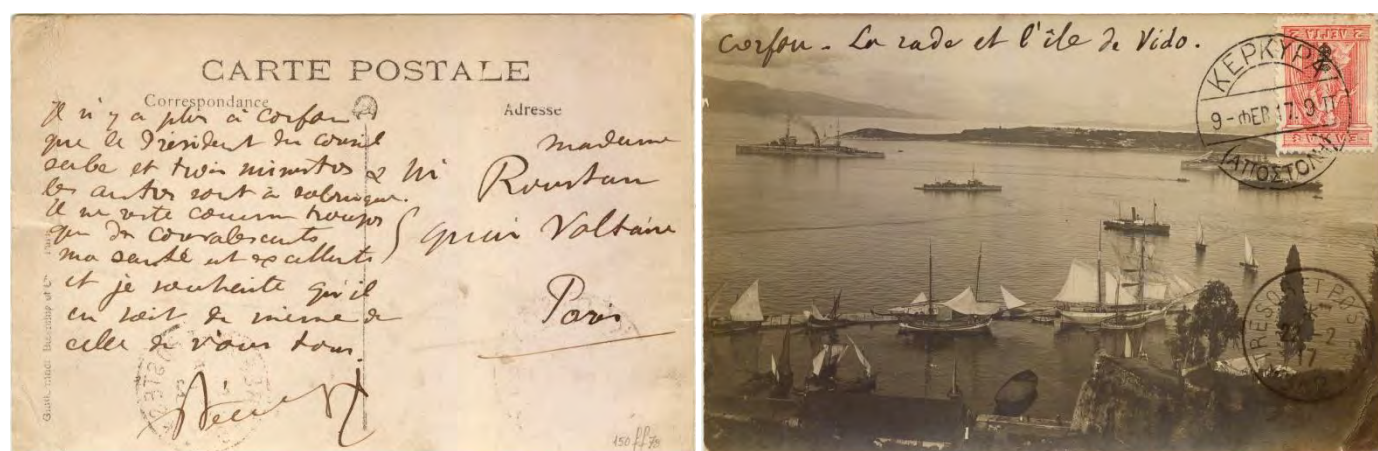 CARTE POSTALE
Correspondance
Adresse
Il n'y a plus à Corfou
que le Président du conseil
serbe et trois ministres
les autres sont à Salonique.
Il ne reste comme troupes
que des convalescents
ma santé est excellente
et je souhaite qu'il
en soit de même de
celle de vous tous.
madame
Roustan
5 quai Voltaire
Paris
150 ff
Corfou - La rade et l'île de Vido.
ΚΕΡΚΥΡΑ
9-ΦΕΒ 17.9 Π
(ΑΠΟΣΤΟΛΗ)
TRESOR ET POSTES
22-2
17